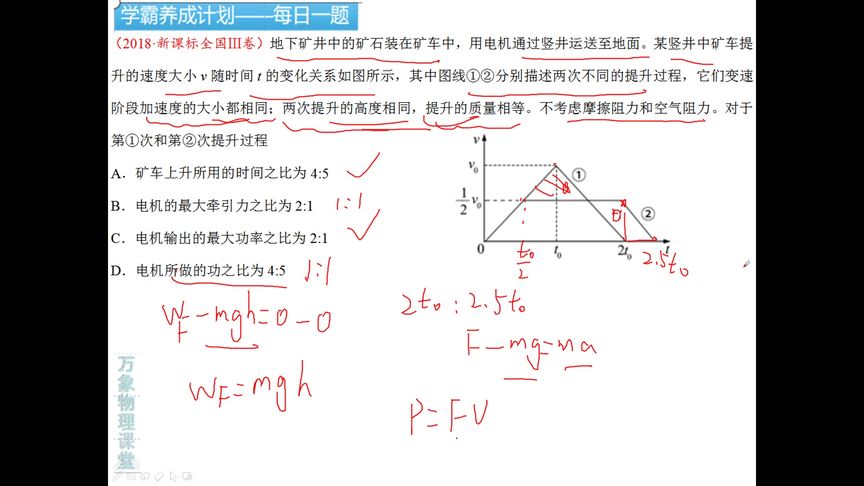 学霸养成计划——每日一题
（2018·新课标全国Ⅲ卷）地下矿井中的矿石装在矿车中，用电机通过竖井运送至地面。某竖井中矿车提
升的速度大小 v 随时间 t 的变化关系如图所示，其中图线①②分别描述两次不同的提升过程，它们变速
阶段加速度的大小都相同；两次提升的高度相同，提升的质量相等。不考虑摩擦阻力和空气阻力。对于
第①次和第②次提升过程
A．矿车上升所用的时间之比为 4:5
B．电机的最大牵引力之比为 2:1 1:1
C．电机输出的最大功率之比为 2:1
D．电机所做的功之比为 4:5 1:1
v
v₀
①
1/2 v₀
②
0 t₀ 2t₀ t
t₀/2
2.5t₀
2t₀ : 2.5t₀
W_F-mgh=0-0
F-mg=ma
W_F=mgh
P=FV
万象物理课堂